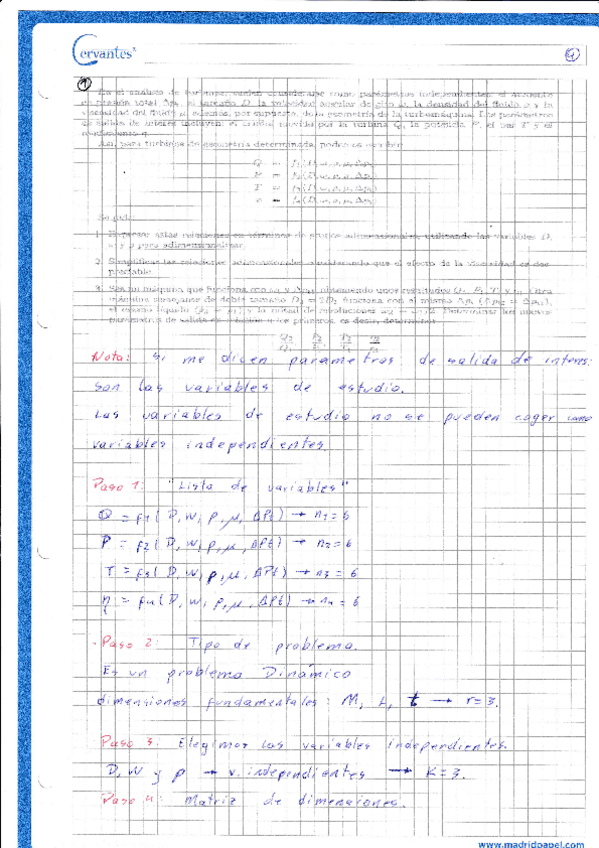 Cervantes
1
En el análisis de turbinas, suelen considerarse como parámetros independientes: el aumento
de presión total Δpt, el tamaño D, la velocidad angular de giro ω, la densidad del fluido ρ y la
viscosidad del fluido μ, además, por supuesto, de la geometría de la turbomáquina. Los parámetros
de salida de interés incluyen: el caudal movido por la turbina Q, la potencia P, el par T y el
rendimiento η.
Así, para turbinas de geometría determinada, podrá escribir
Q = f1(D, ω, ρ, μ, Δpt)
P = f2(D, ω, ρ, μ, Δpt)
T = f3(D, ω, ρ, μ, Δpt)
η = f4(D, ω, ρ, μ, Δpt)
Se pide:
1. Expresar estas relaciones en términos de grupos adimensionales, utilizando las variables D,
ω y ρ para adimensionalizar.
2. Simplificar las relaciones adimensionales considerando que el efecto de la viscosidad es des-
preciable.
3. Sea una máquina que funciona con
máquina semejante de doble tamaño D2 = 2D1 funciona con el mismo
el mismo líquido
parámetros de salida
Nota: si me dicen parametros de salida de interes:
son las variables de estudio.
Las variables de estudio no se pueden coger como
variables independientes.
Paso 1: "Lista de variables"
Q = f1 ( D, W, ρ, μ, ΔPt) → n1 = 6
P = f2 ( D, W, ρ, μ, ΔPt) → n2 = 6
T = f3 ( D, W, ρ, μ, ΔPt) → n3 = 6
η = f4 ( D, W, ρ, μ, ΔPt) → n4 = 6
Paso 2: Tipo de problema.
Es un problema Dinámico
dimensiones fundamentales: M, L, t → r=3.
Paso 3: Elegimos las variables independientes.
D, W y ρ → v. independientes → K=3.
Paso 4: Matriz de dimensiones.
www.madridpapel.com